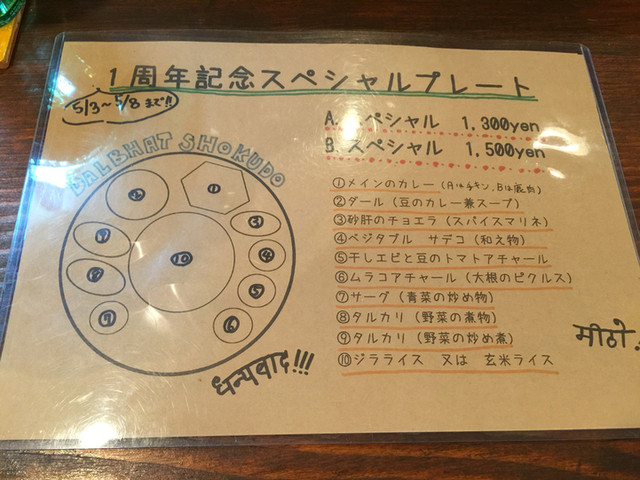 1周年記念スペシャルプレート
5/3～5/8まで!!
A.スペシャル 1,300yen
B.スペシャル 1,500yen
DALBHAT SHOKUDO
①メインのカレー(Aはチキン、Bは鹿肉)
②ダール(豆のカレー兼スープ)
③砂肝のチョエラ(スパイスマリネ)
④ベジタブル サデコ(和え物)
⑤干しエビと豆のトマトアチャール
⑥ムラコアチャール(大根のピクルス)
⑦サーグ(青菜の炒め物)
⑧タルカリ(野菜の煮物)
⑨タルカリ(野菜の炒め煮)
⑩ジラライス 又は 玄米ライス
② ①
⑦ ③
⑧ ⑩ ④
⑤
⑨ ⑥
धन्यवाद!!!
मीठो!